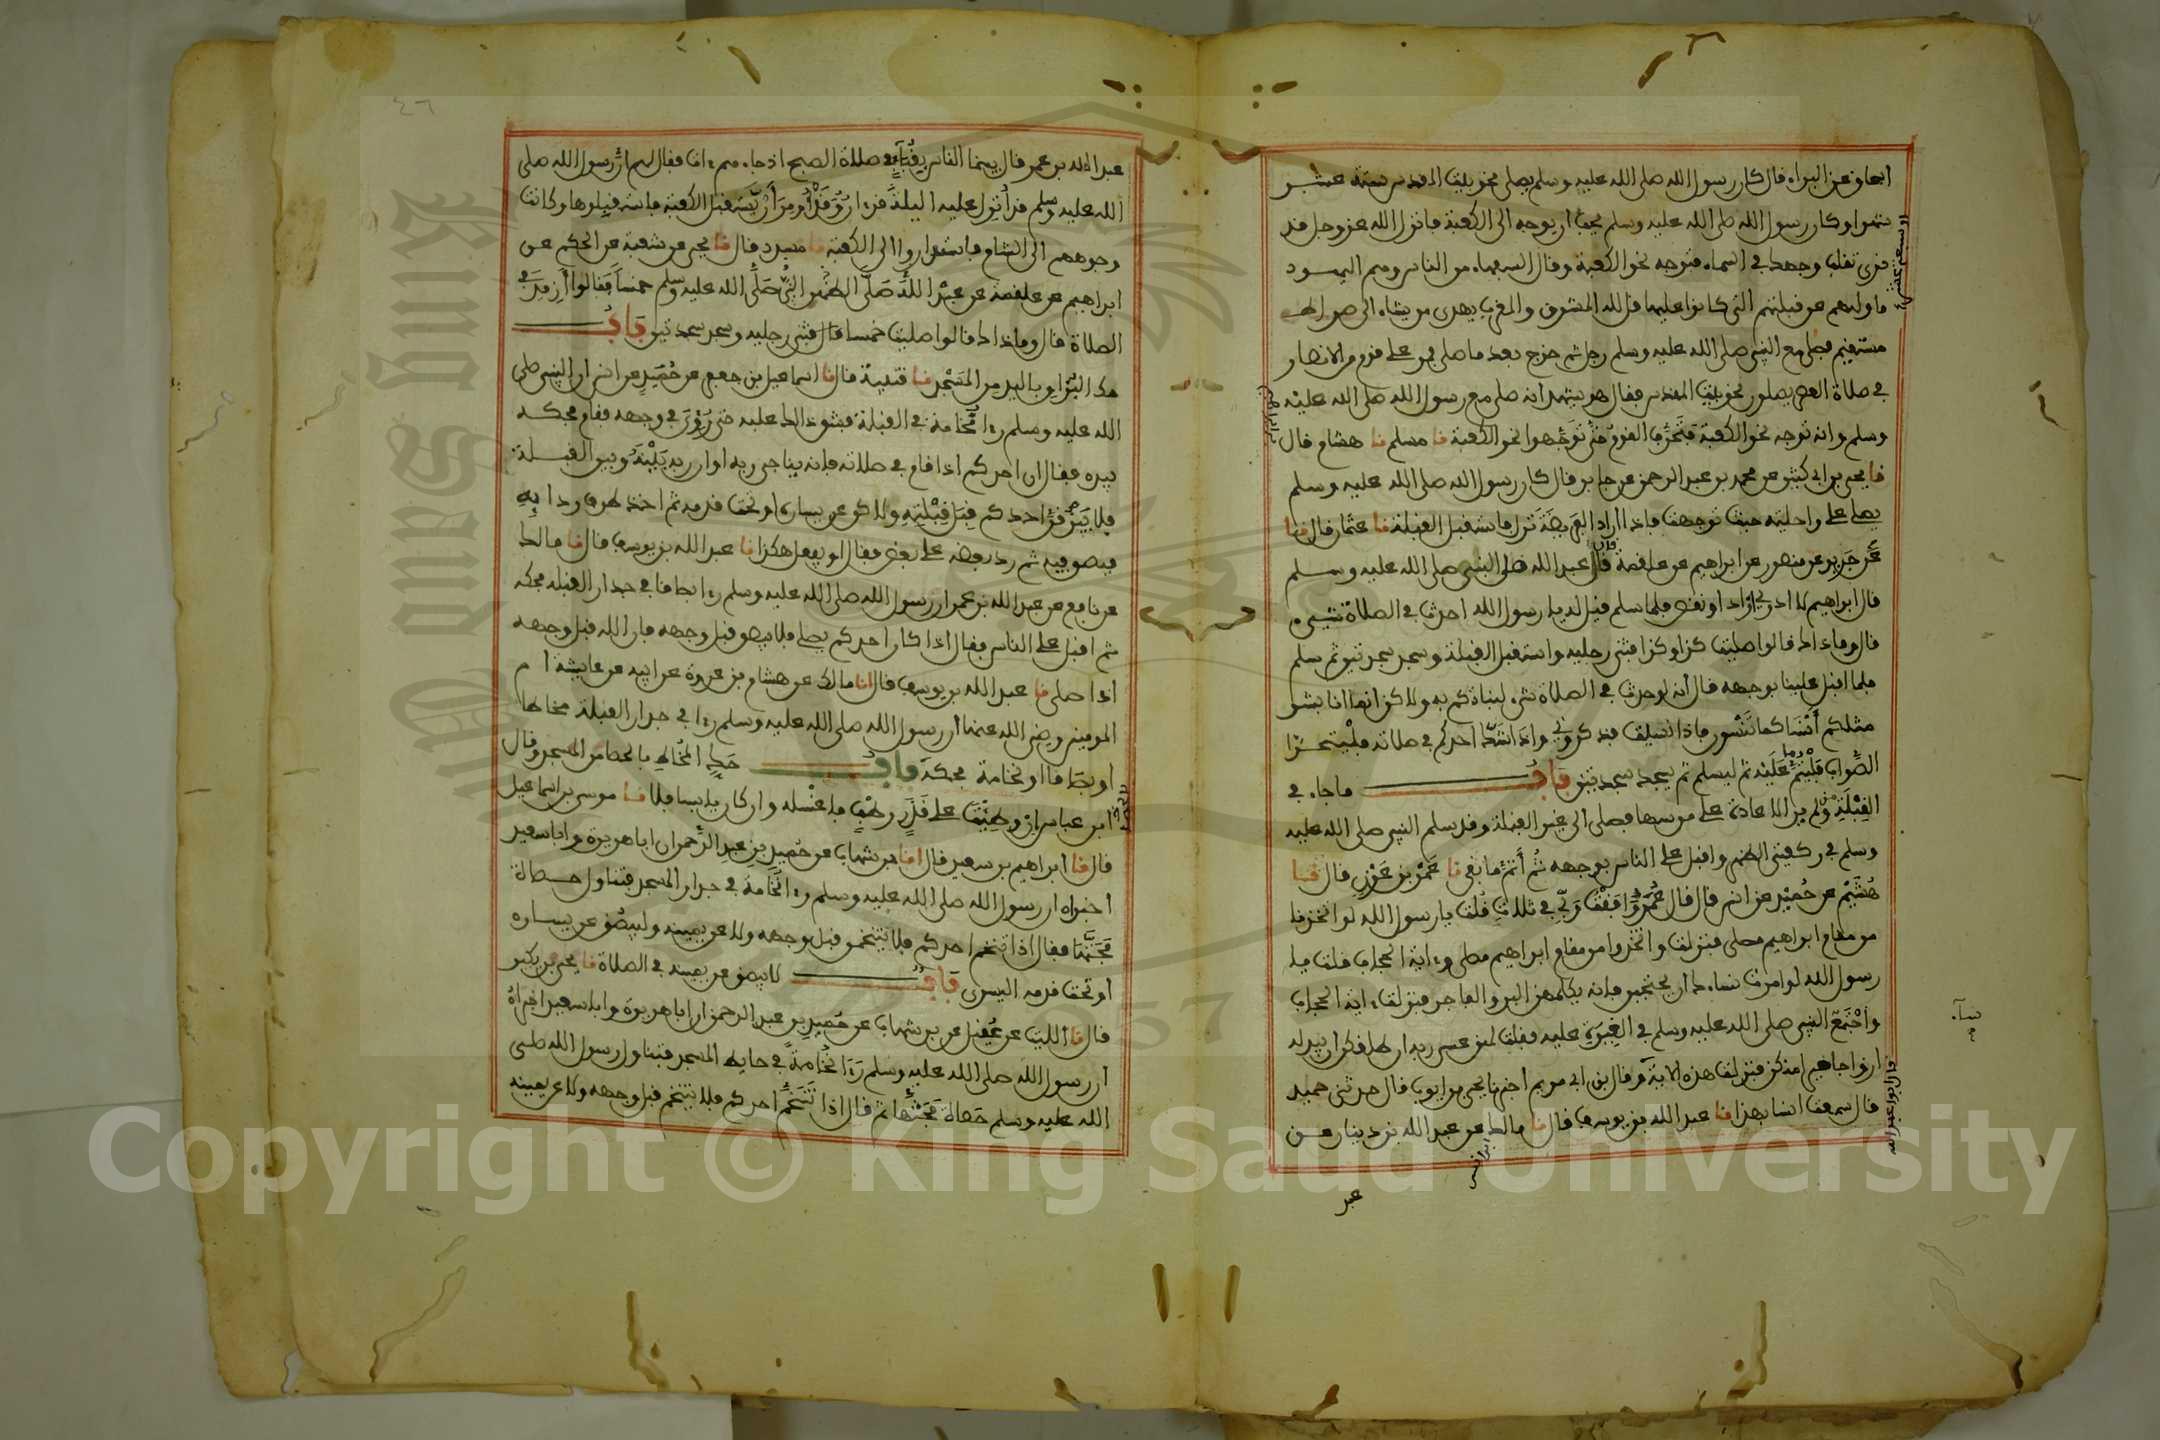 اسحاق عن البراء قال كان رسول الله صلى الله عليه وسلم يصلى نحو بيت المقدس ستة عشر
شهرا وكان رسول الله صلى الله عليه وسلم يحب أن يوجه الى الكعبة فانزل الله عز وجل قد
نرى تقلب وجهك في السماء فتوجه نحو الكعبة وقال السفهاء من الناس وهم اليهود
ما وليهم عن قبلتهم التى كانوا عليها قل لله المشرق والمغرب يهدى من يشاء الى صراط
مستقيم فصلى مع النبي صلى الله عليه وسلم رجل ثم خرج بعد ما صلى فمر على قوم من الانصار
في صلاة العصر يصلون نحو بيت المقدس فقال هو يشهد انه صلى مع رسول الله صلى الله عليه
وسلم وانه توجه نحو الكعبة فتحرف القوم حتى توجهوا نحو الكعبة نا مسلم نا هشام قال
نا يحيى بن ابي كثير عن محمد بن عبد الرحمن عن جابر قال كان رسول الله صلى الله عليه وسلم
يصلى على راحلته حيث توجهت فاذا اراد الفريضة نزل فاستقبل القبلة نا عثمان قال نا
جرير عن منصور عن ابراهيم عن علقمة قال عبد الله صلى النبي صلى الله عليه وسلم
قال ابراهيم لا ادري زاد او نقص فلما سلم قيل له يا رسول الله احدث في الصلاة شيء
قال وما ذاك قالوا صليت كذا وكذا فثنى رجليه واستقبل القبلة وسجد سجدتين ثم سلم
فلما اقبل علينا بوجهه قال أنه لو حدث في الصلاة شيء لنبأتكم به ولاكن انما انا بشر
مثلكم أنسا كما تنسون فاذا نسيت فذكروني واذا شك احدكم في صلاته فليتحرا
الصواب فليتم عليه ثم ليسلم ثم يسجد سجدتين باب ما جاء في
القبلة ومن لم ير الاعادة على من سها فصلى الى غير القبلة وقد سلم النبي صلى الله عليه
وسلم في ركعتى الظهر واقبل على الناس بوجهه ثم أتم ما بقى نا عمرو بن عون قال نا
هشيم عن حميد عن انس قال قال عمر وافقت ربي في ثلاث قلت يا رسول الله لو اتخذنا
من مقام ابراهيم مصلى فنزلت واتخذوا من مقام ابراهيم مصلى وءاية الحجاب قلت يا
رسول الله لو امرت نساءك أن يحتجبن فانه يكلمهن البر والفاجر فنزلت ءاية الحجاب
واجتمع النبي صلى الله عليه وسلم في الغيرة عليه فقلت لهن عسى ربه ان طلقكن ان يبدله
ازواجا خيرا منكن فنزلت هذه الاية وقال بن ابي مريم أخبرنا يحيى بن ايوب قال حدثنى حميد
قال سمعت انسا بهذا نا عبد الله بن يوسف قال نا مالك عن عبد الله بن دينار عن
او سبعة عشر
عبد
عبد الله بن عمر قال بينما الناس بقباء في صلاة الصبح اذ جاءهم ءات فقال لهم ان رسول الله صلى
الله عليه وسلم قد أنزل عليه الليلة قرءان وقد أمر أن يستقبل الكعبة فاستقبلوها وكانت
وجوههم الى الشام فاستداروا الى الكعبة نا مسدد قال نا يحيى عن شعبة عن الحكم عن
ابراهيم عن علقمة عن عبد الله صلى الظهر النبي صلى الله عليه وسلم خمسا فقالوا أزيد في
الصلاة قال وما ذاك قالوا صليت خمسا قال فثنى رجليه وسجد سجدتين باب
حك البزاق باليد من المسجد نا قتيبة قال نا اسماعيل بن جعفر عن حميد عن انس ان النبي صلى
الله عليه وسلم رءا نخامة في القبلة فشق ذلك عليه حتى رءي في وجهه فقام فحكه
بيده فقال ان احدكم اذا قام في صلاته فانه يناجى ربه او ان ربه بينه وبين القبلة
فلا يبزقن احدكم قبل قبلته ولاكن عن يساره او تحت قدمه ثم اخذ طرف ردائه
فبصق فيه ثم رد بعضه على بعض فقال او يفعل هكذا نا عبد الله بن يوسف قال نا مالك
عن نافع عن عبد الله بن عمر ان رسول الله صلى الله عليه وسلم رءا بصاقا في جدار القبلة فحكه
ثم اقبل على الناس فقال اذا كان احدكم يصلى فلا يبصق قبل وجهه فان الله قبل وجهه
اذا صلى نا عبد الله بن يوسف قال انا مالك عن هشام بن عروة عن ابيه عن عايشة ام
المومنين رضى الله عنها أن رسول الله صلى الله عليه وسلم رءا في جدار القبلة مخاطا
او بصاقا او نخامة فحكه باب حك المخاط بالحصا من المسجد وقال
ابن عباس ان وطئت على قذر رطب فاغسله وان كان يابسا فلا نا موسى بن اسماعيل
قال نا ابراهيم بن سعد قال انا بن شهاب عن حميد بن عبد الرحمن ان ابا هريرة وابا سعيد
اخبراه ان رسول الله صلى الله عليه وسلم رءا نخامة في جدار المسجد فتناول حصاة
فحتها فقال اذا تنخم احدكم فلا يتنخمن قبل وجهه ولا عن يمينه وليبصق عن يساره
او تحت قدمه اليسرى باب لا يبصق عن يمينه في الصلاة نا يحيى بن بكير
قال نا الليث عن عقيل عن بن شهاب عن حميد بن عبد الرحمن ان ابا هريرة وابا سعيد اخبراه
أن رسول الله صلى الله عليه وسلم رءا نخامة في حايط المسجد فتناول رسول الله صلى
الله عليه وسلم حصاة فحتها ثم قال اذا تنخم أحدكم فلا يتنخم قبل وجهه ولا عن يمينه
٤٦
King Saud University
1957
Copyright © King Saud University